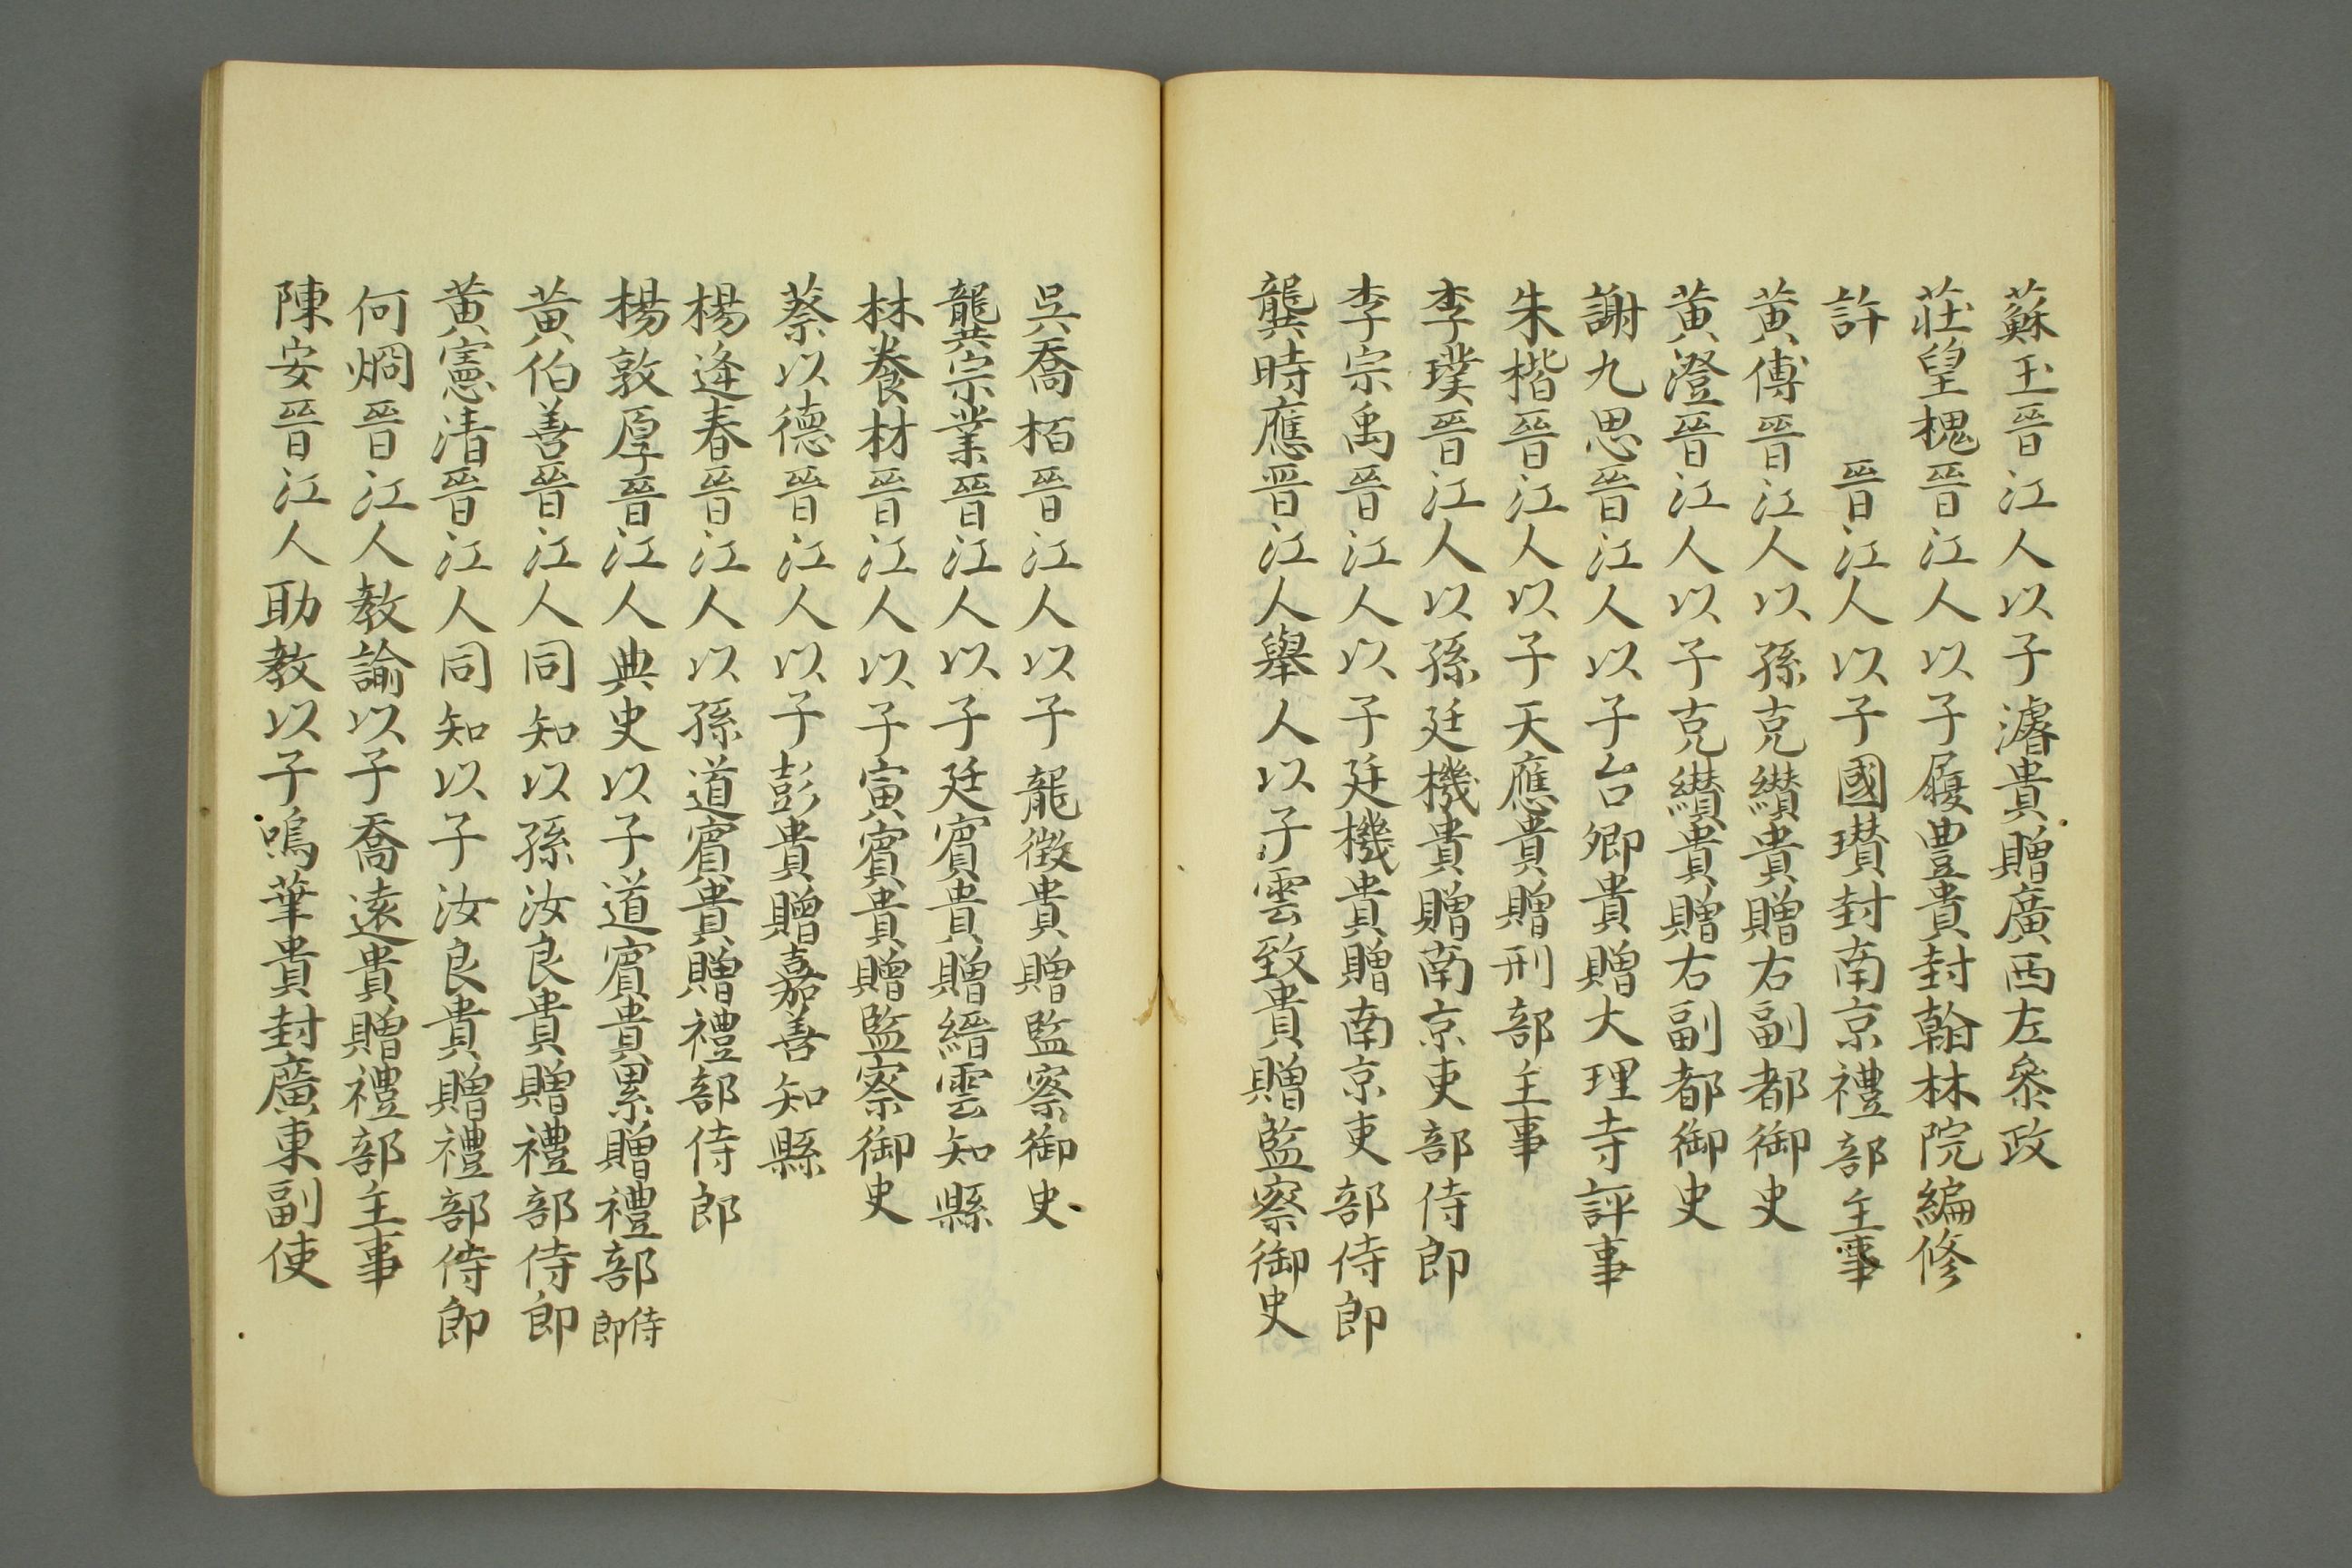 蘇玉晉江人以子濬貴贈廣西左叅政
莊望槐晉江人以子履豊貴封翰林院編修
許　　晉江人以子國瓚封南京禮部主事
黄傅晉江人以孫克纉貴贈右副都御史
黄澄晉江人以子克纉貴贈右副都御史
謝九思晉江人以子台卿貴贈大理寺評事
朱楷晉江人以子天應貴贈刑部主事
李璞晉江人以孫廷機貴贈南京吏部侍郎
李宗禹晉江人以子廷機貴贈南京吏部侍郎
龔時應晋江人舉人以子雲致貴贈監察御史
吳喬栢晉江人以子龍徵貴贈監察御史
龔宗業晉江人以子廷賓貴贈縉雲知縣
林養材晉江人以子寅賓貴贈監察御史
蔡以德晉江人以子彭貴贈嘉善知縣
楊逢春晉江人以孫道賓貴贈禮部侍郎
楊敦厚晉江人典史以子道賓貴累贈禮部侍郎
黄伯善晉江人同知以孫汝良貴贈禮部侍郎
黄憲清晉江人同知以子汝良貴贈禮部侍郎
何烱晉江人教諭以子喬遠貴贈禮部主事
陳安晉江人助教以子鳴華貴封廣東副使